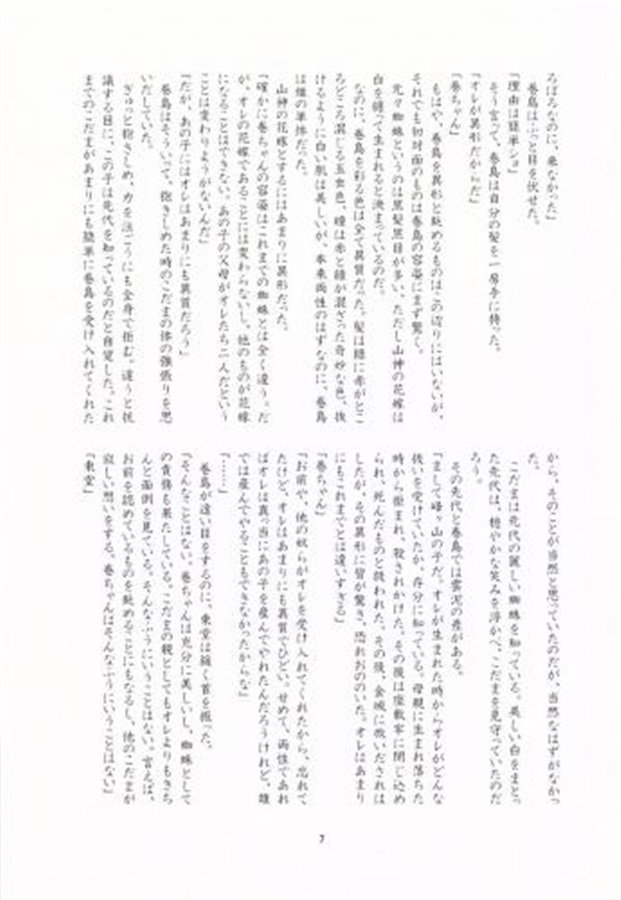 ろぼろなのに、来なかった」
巻島はふっと目を伏せた。
「理由は簡単ショ」
そう言って、巻島は自分の髪を一房手に持った。
「オレが異形だからだ」
「巻ちゃん」
もはや、巻島を異形と眺めるものはこの辺りにはいないが、
それでも初対面のものは巻島の容姿にまず驚く。
元々蜘蛛というのは黒髪黒目が多い、ただし山神の花嫁は
白を纏って生まれると決まっているのだ。
なのに、巻島を彩る色は全て異質だった。髪は緑に赤がとこ
ろどころ混じる玉虫色、瞳は赤と緑が混ざった奇妙な色、抜
けるように白い肌は美しいが、本来両性のはずなのに、巻島
は雄の単体だった。
山神の花嫁とするにはあまりに異形だった。
「確かに巻ちゃんの容姿はこれまでの蜘蛛とは全く違う。だ
が、オレの花嫁であることには変わらないし、他のものが花嫁
になることはできない。あの子の父母がオレたち二人だという
ことは変わりようがないんだ」
「だが、あの子にはオレはあまりにも異質だろう」
巻島はそういって、抱きしめた時のこだまの体の強張りを思
いだしていた。
ぎゅっと抱きしめ、力を注ごうにも全身で拒む。違うと抗
議する目に、この子は先代を知っているのだと自覚した。これ
までのこだまがあまりにも簡単に巻島を受け入れてくれた
から、そのことが当然と思っていたのだが、当然なはずがなかっ
た。
こだまは先代の麗しい蜘蛛を知っている。美しい白をまとっ
た先代は、穏やかな笑みを浮かべ、こだまを見守っていたのだ
ろう。
その先代と巻島では雲泥の差がある。
「まして峰ヶ山の子だ。オレが生まれた時からオレがどんな
扱いを受けていたか、存分に知っている。母親に生まれ落ちた
時から疎まれ、殺されかけた。その後は座敷牢に閉じ込め
られ、死んだものと扱われた。その後、金城に救いだされは
したが、その異形に皆が驚き、恐れおののいた。オレはあまり
にもこれまでとは違いすぎる」
「巻ちゃん」
「お前や、他の奴らがオレを受け入れてくれたから、忘れて
たけど、オレはあまりにも異質でひどい。せめて、両性であれ
ばオレは真っ当にあの子を産んでやれたんだろうけれど、雄
では産んでやることもできなかったからな」
「……」
巻島が遠い目をするのに、東堂は緩く首を振った。
「そんなことはない。巻ちゃんは充分に美しいし、蜘蛛として
の責務も果たしている。こだまの親としてもオレよりもきち
んと面倒を見ている。そんなふうにいうことはない。言えば、
お前を認めているものを貶めることにもなるし、他のこだまが
寂しい想いをする。巻ちゃんはそんなふうにいうことはない」
「東堂」
7